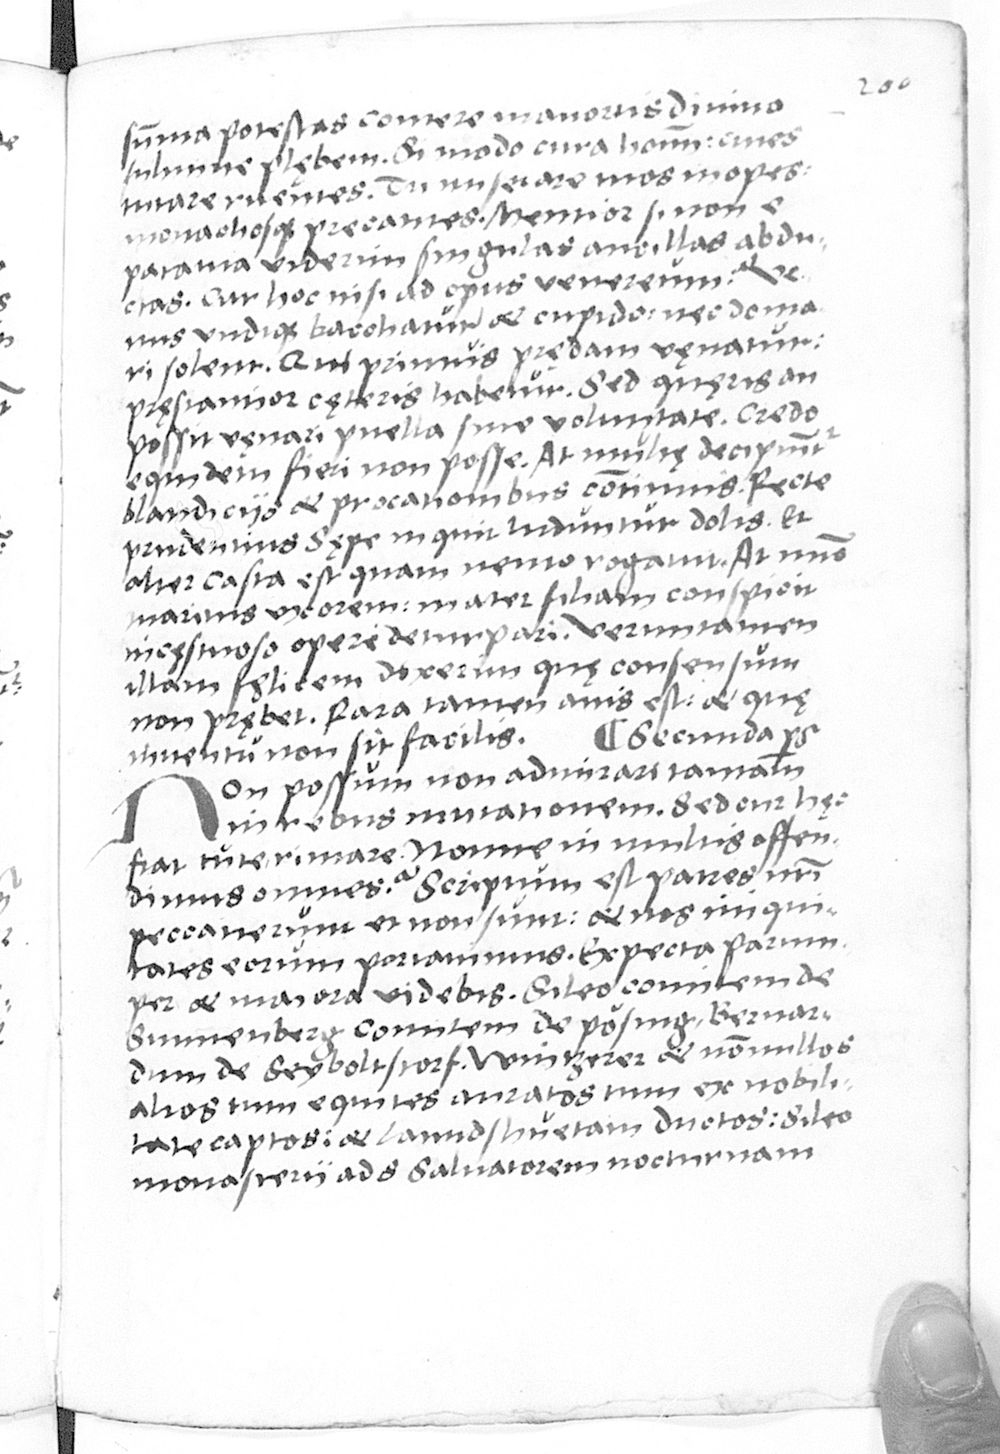 200
sūma potestas contere mavortis divino
fulmine plębem. Si modo cura hoīm: cives
tutare ruentes. Tu miserare mos inopes:
monachosq precantes. Mentior si non e
patama viderim singulas ancillas abdu-
ctas. Cur hoc nisi ad opus venereum? Ve-
nus undiq bacchatur & cupido: nec doma-
ri solent. Qui primus prędam vęnatur:
pręstantior cęteris habetur. Sed quęris an
possit vęnari puella sine voluntate. Credo
equidem fieri non posse. At multę decipiūtr
blandicijs & procationibus cōtinuis. Recte
prudentius Sępe inquit luduntur dolis. Et
alter Casta est quam nemo rogavit. At nūc
maritus uxorem: mater filiam conspicit
incęstuoso operi deturpari. Veruntamen
illam fęlicem dixerim quę consensum
non prębet. Rara tamen avis est: & quę
inventu non sit facilis. Secunda ps
Non possum non admirari tantam
in rebus mutationem. Sed cur hęc
fiat tute rimare. Nonne in multis offen-
dimus omnes? Scriptum est patres nr̄i
peccaverunt et non sunt: & nos iniqui-
tates eorum portavimus. Expecta parum-
per & maiora videbis. Sileo comitem de
Sunnenberg Comitem de pösing, Bernar-
dum de Seyboltstorf. Wintzerer & nōnullos
alios tum equites auratos tum ex nobili-
tate captos: & lanndshuetam ductos: Sileo
monasterij ad S Salvatorem nocturnam